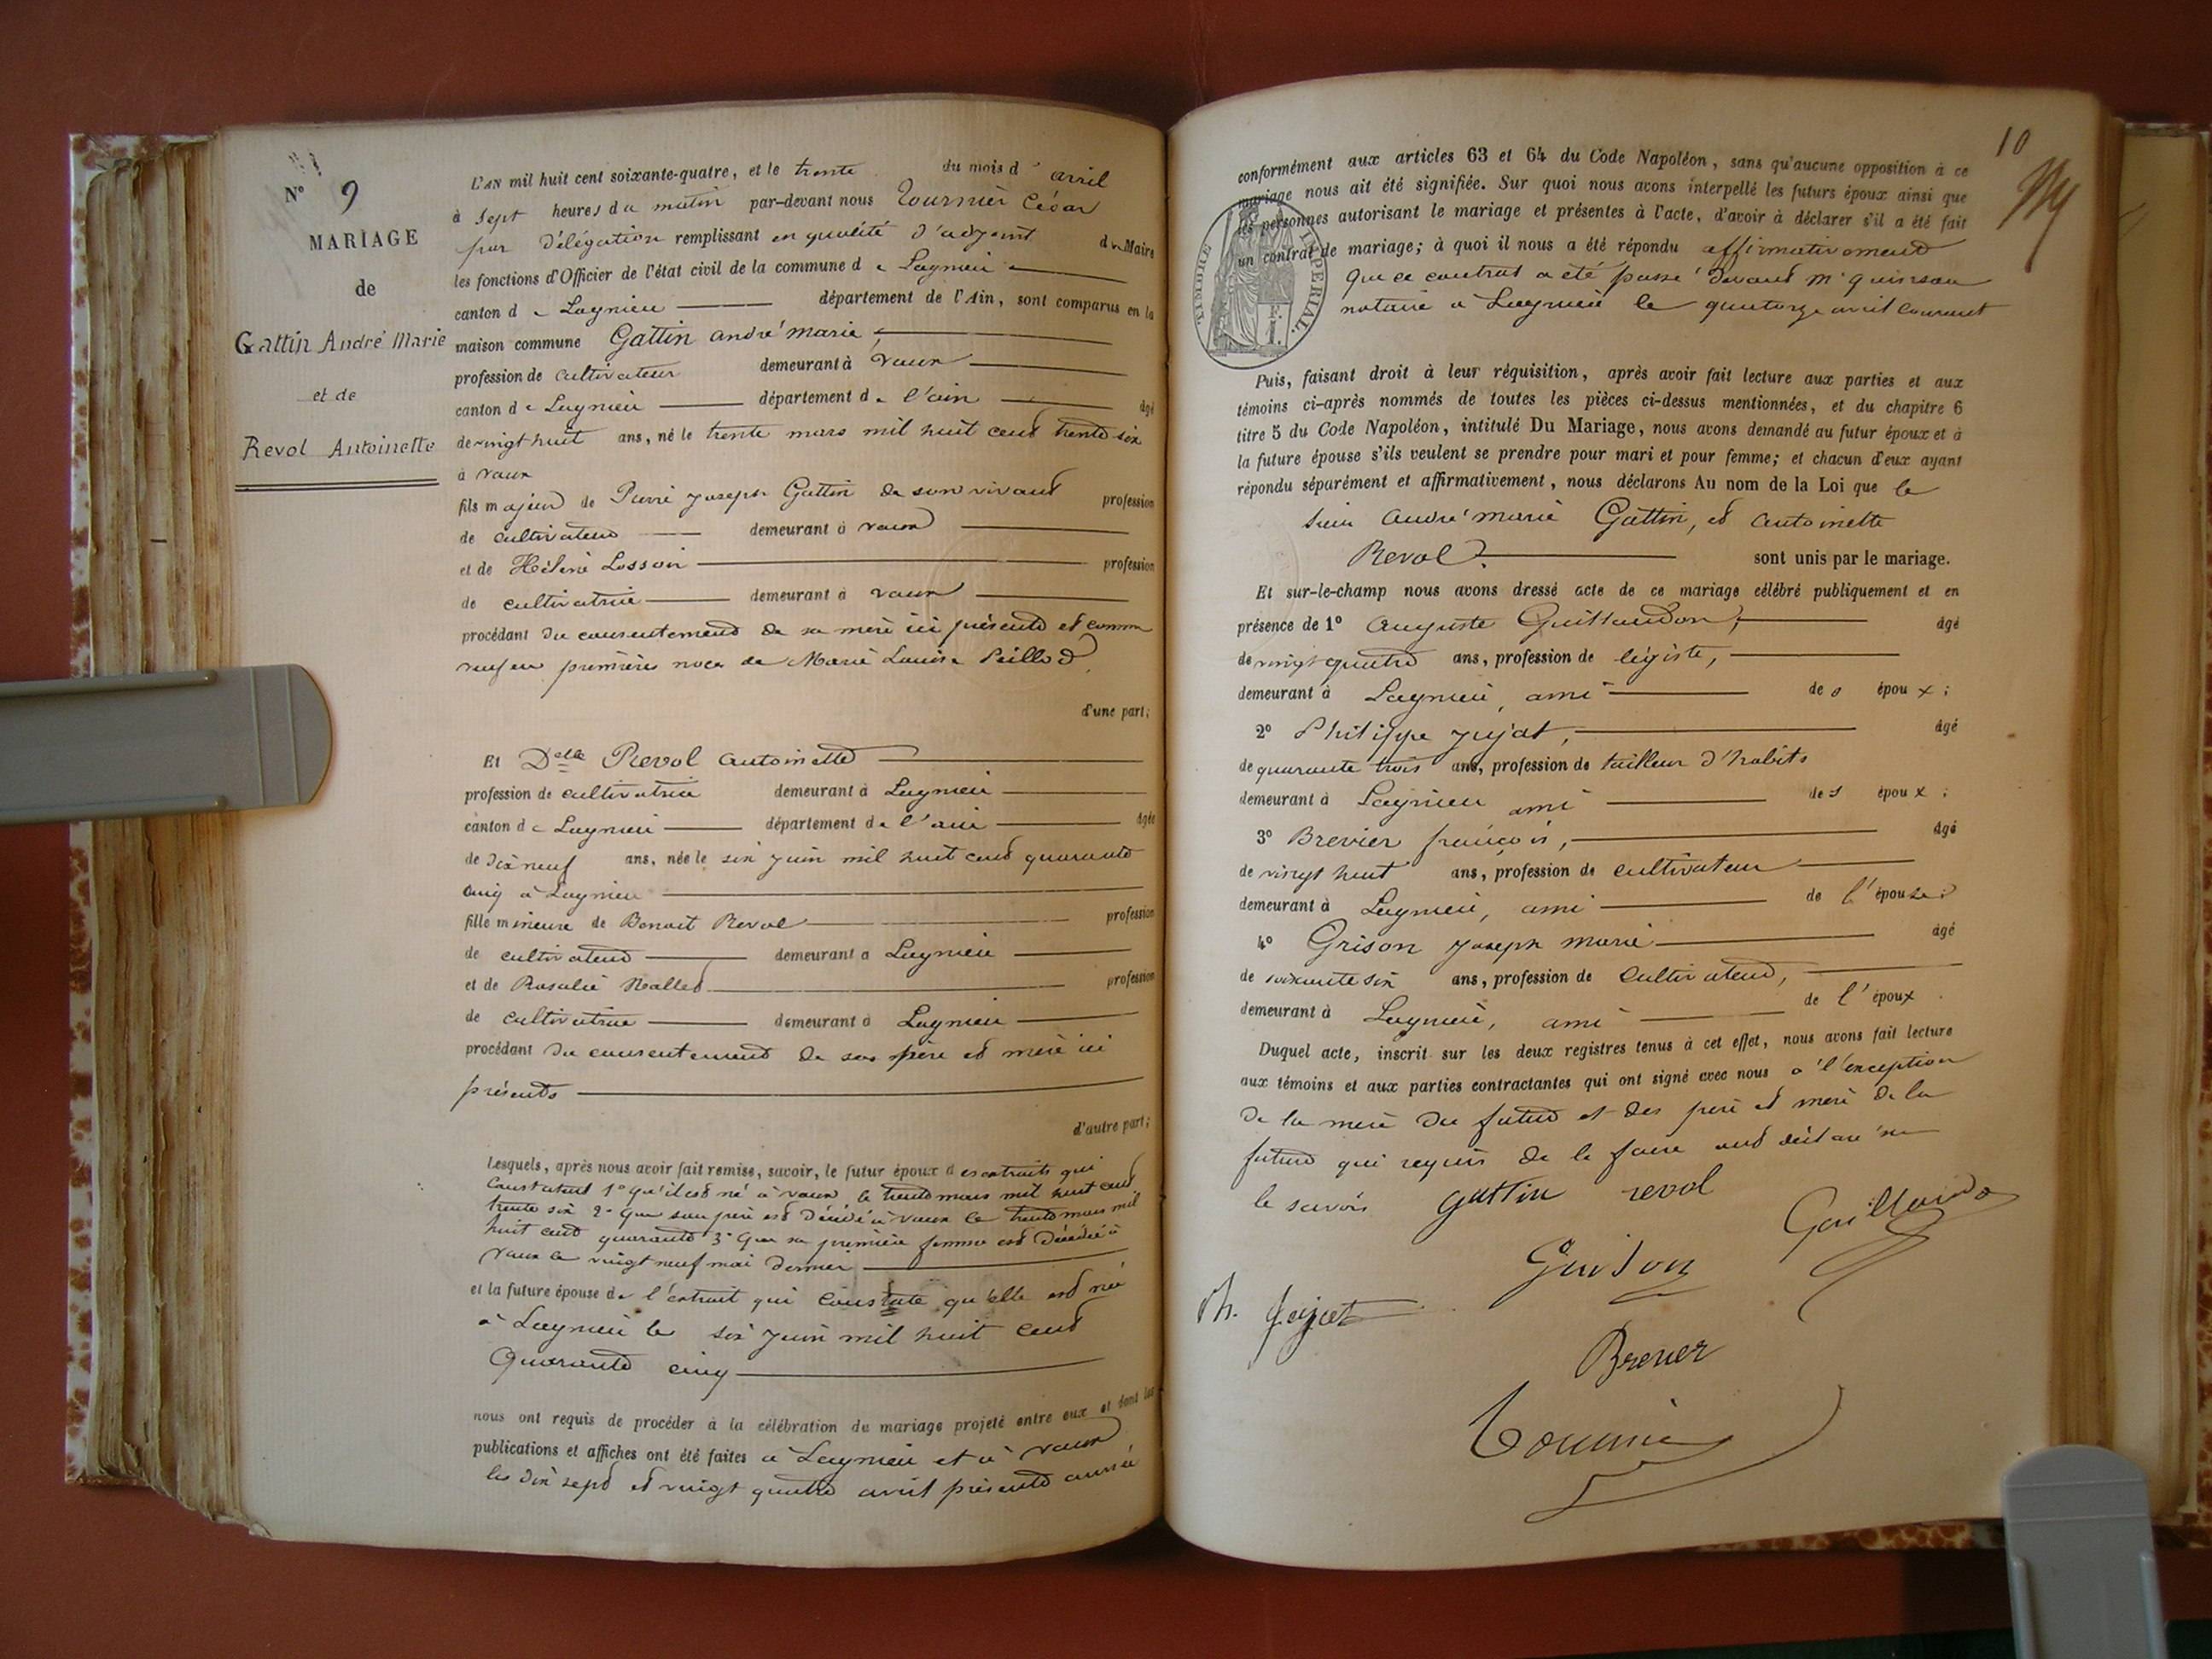 N° 9
MARIAGE
de
Gattin André Marie
et de
Revol Antoinette
L'AN mil huit cent soixante-quatre, et le trente du mois d'avril
à sept heures du matin par-devant nous Tournier César
par Délégation remplissant en qualité d'adjoint du Maire
les fonctions d'Officier de l'état civil de la commune de Lagnieu
canton de Lagnieu département de l'Ain, sont comparus en la
maison commune Gattin andré marie
profession de cultivateur demeurant à Vaux
canton de Lagnieu département de l'ain âgé
de vingt huit ans, né le trente mars mil huit cent trente six
à Vaux
fils majeur de Pierre Joseph Gattin de son vivant profession
de cultivateur demeurant à vaux
et de Hélène profession
de cultivatrice demeurant à vaux
procédant du consentement de sa mère ici présente et comme
veuf en première noce de Marie Louise Peillod
d'une part;
Et Delle Revol antoinette
profession de cultivatrice demeurant à Lagnieu
canton de Lagnieu département de l'ain âgée
de dix neuf ans, née le six juin mil huit cent quarante
cinq à Lagnieu
fille mineure de Benoit Revol profession
de cultivateur demeurant à Lagnieu
et de Rosalie Nallet profession
de cultivatrice demeurant à Lagnieu
procédant du consentement de ses père et mère ici
présents
d'autre part;
Lesquels, après nous avoir fait remise, savoir, le futur époux des extraits qui
constatent 1° qu'il est né à vaux le trente mars mil huit cent
trente six 2° que son père est décédé à vaux le trente mars mil
huit cent quarante 3° que sa première femme est décédée à
vaux le vingt neuf mai dernier
et la future épouse de l'extrait qui constate qu'elle est née
à Lagnieu le six juin mil huit cent
quarante cinq
nous ont requis de procéder à la célébration du mariage projeté entre eux et dont les
publications et affiches ont été faites à Lagnieu et à vaux
les dix sept et vingt quatre avril présente année
10
conformément aux articles 63 et 64 du Code Napoléon, sans qu'aucune opposition à ce
mariage nous ait été signifiée. Sur quoi nous avons interpellé les futurs époux ainsi que
les personnes autorisant le mariage et présentes à l'acte, d'avoir à déclarer s'il a été fait
un contrat de mariage; à quoi il nous a été répondu affirmativement
que ce contrat a été passé devant Me quinson
notaire à Lagnieu le quatorze avril courant
TIMBRE IMPERIAL.
Puis, faisant droit à leur réquisition, après avoir fait lecture aux parties et aux
témoins ci-après nommés de toutes les pièces ci-dessus mentionnées, et du chapitre 6
titre 5 du Code Napoléon, intitulé Du Mariage, nous avons demandé au futur époux et à
la future épouse s'ils veulent se prendre pour mari et pour femme; et chacun d'eux ayant
répondu séparément et affirmativement, nous déclarons Au nom de la Loi que le
sieur André marie Gattin, et antoinette
Revol sont unis par le mariage.
Et sur-le-champ nous avons dressé acte de ce mariage célébré publiquement et en
présence de 1° Auguste Guillaudon, âgé
de vingt quatre ans, profession de légiste,
demeurant à Lagnieu, ami des époux;
2° Philippe Jujat, âgé
de quarante trois ans, profession de tailleur d'habits
demeurant à Lagnieu ami des époux;
3° Brevier françois, âgé
de vingt huit ans, profession de cultivateur
demeurant à Lagnieu, ami de l'épouse;
4° Grison Joseph marie âgé
de soixante six ans, profession de cultivateur,
demeurant à Lagnieu, ami de l'époux
Duquel acte, inscrit sur les deux registres tenus à cet effet, nous avons fait lecture
aux témoins et aux parties contractantes qui ont signé avec nous à l'exception
de la mère du futur et des père et mère de la
future qui requis de le faire ont déclaré ne
le savoir gattin revol
Grison
Ph. Jujat
Brevier